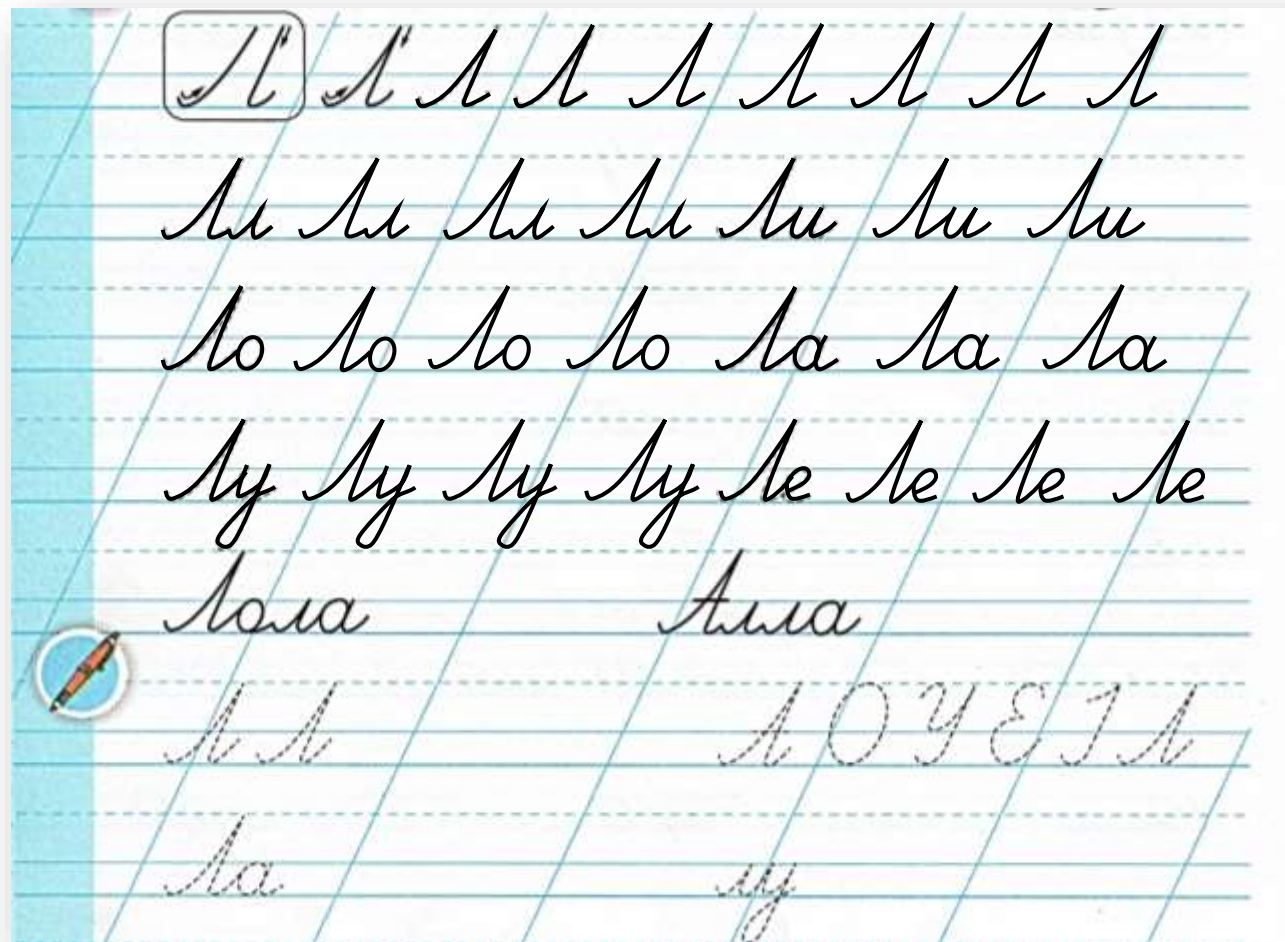 Л Л Л Л Л Л Л Л Л
Лл Лл Лл Лл Ли Ли Ли
Ло Ло Ло Ло Ла Ла Ла
Лу Лу Лу Лу Ле Ле Ле Ле
Лола Алла
Л Л А О У Е І Л
Ла лу